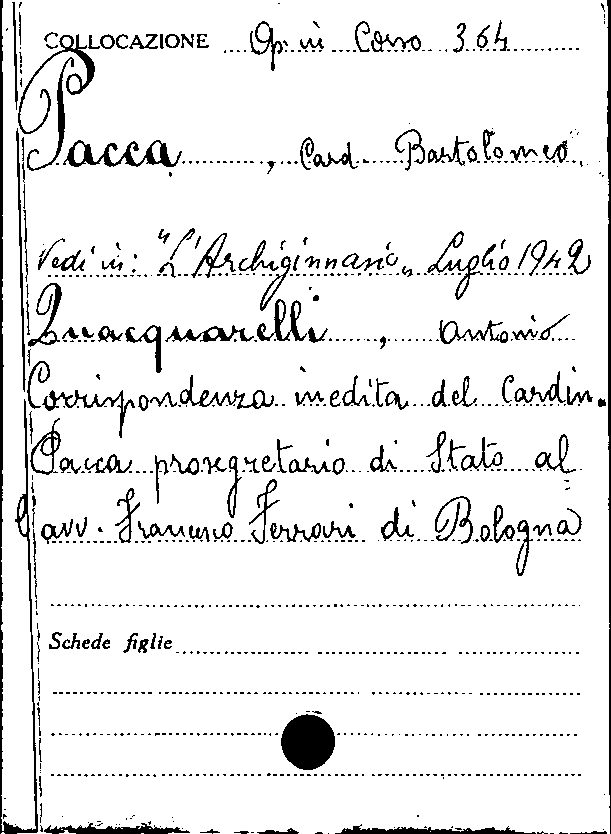 COLLOCAZIONE Op. in Corso 364
Pacca, Card. Bartolomeo
Vedi in: "L'Archiginnasio" Luglio 1942
Quacquarelli, Antonio
Corrispondenza inedita del Cardin.
Pacca prosegretario di Stato al=
l'avv. Francesco Ferrari di Bologna
Schede figlie